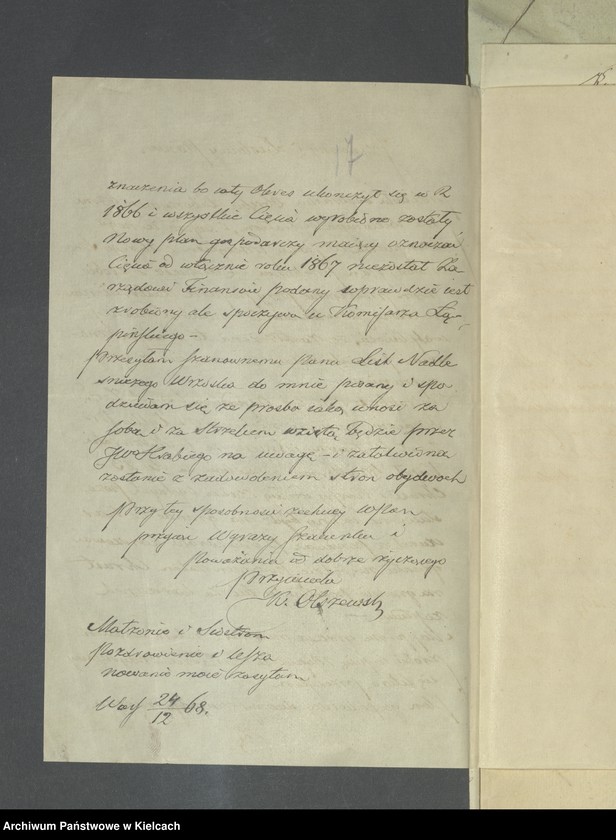 17
znaczenia bo cały Okres ukończył się w R
1866 i wszystkie Cięcia wyrobione zostały
Nowy plan gospodarczy mający oznaczać
Cięcia od włącznie roku 1867 niezostał Za
rządowi Finansów podany wprawdzie jest
zrobiony ale spoczywa u Komisarza Łę-
pińskiego –
Przesyłam szanownemu Panu List Nadle
śniczego Wrzoska do mnie pisany i spo
dziewam się że prośba jaką wnosi za
sobą i za Strzelcem wziętą będzie przez
JW Hrabiego na uwagę – i załatwiona
zostanie z zadowoleniem stron obydwóch
Przy tej sposobności zechciej WPan
przyjąć Wyrazy szacunku i
Poważania od dobrze życzącego
Przyjaciela
K. Olszewski
Małżonie i Siostrom
Pozdrowienie i usza
nowanie moie zasyłam
24/12 68.
K.
Archiwum Państwowe w Kielcach